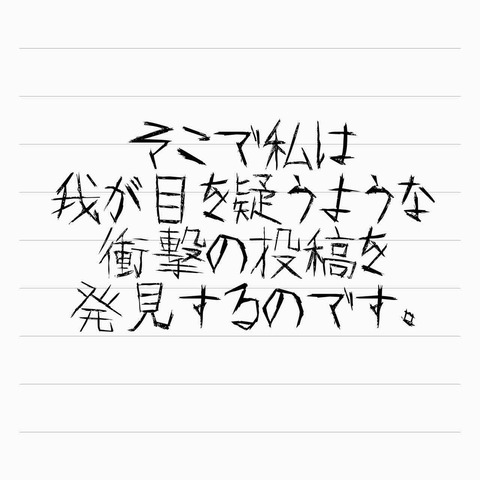 そこで私は
我が目を疑うような
衝撃の投稿を
発見するのです。